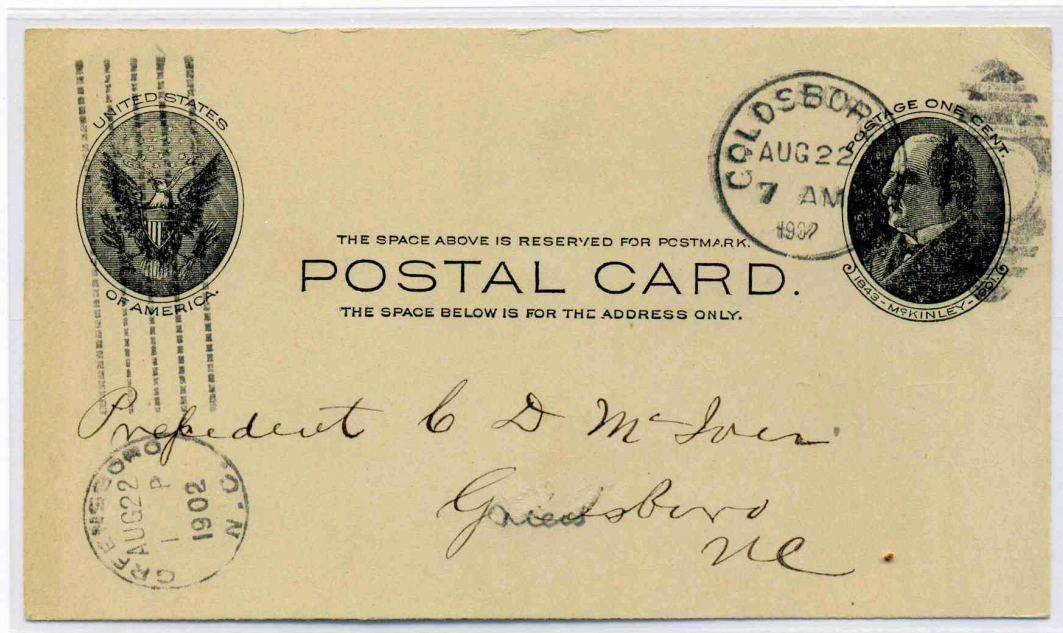 UNITED STATES
OF AMERICA.
GOLDSBOR
AUG 22
7 AM
1902
POSTAGE ONE CENT.
1843-McKINLEY-1901.
THE SPACE ABOVE IS RESERVED FOR POSTMARK.
POSTAL CARD.
THE SPACE BELOW IS FOR THE ADDRESS ONLY.
President C D McIver
Greensboro
NC
GREENSBORO
N.C.
AUG 22
1 P
1902